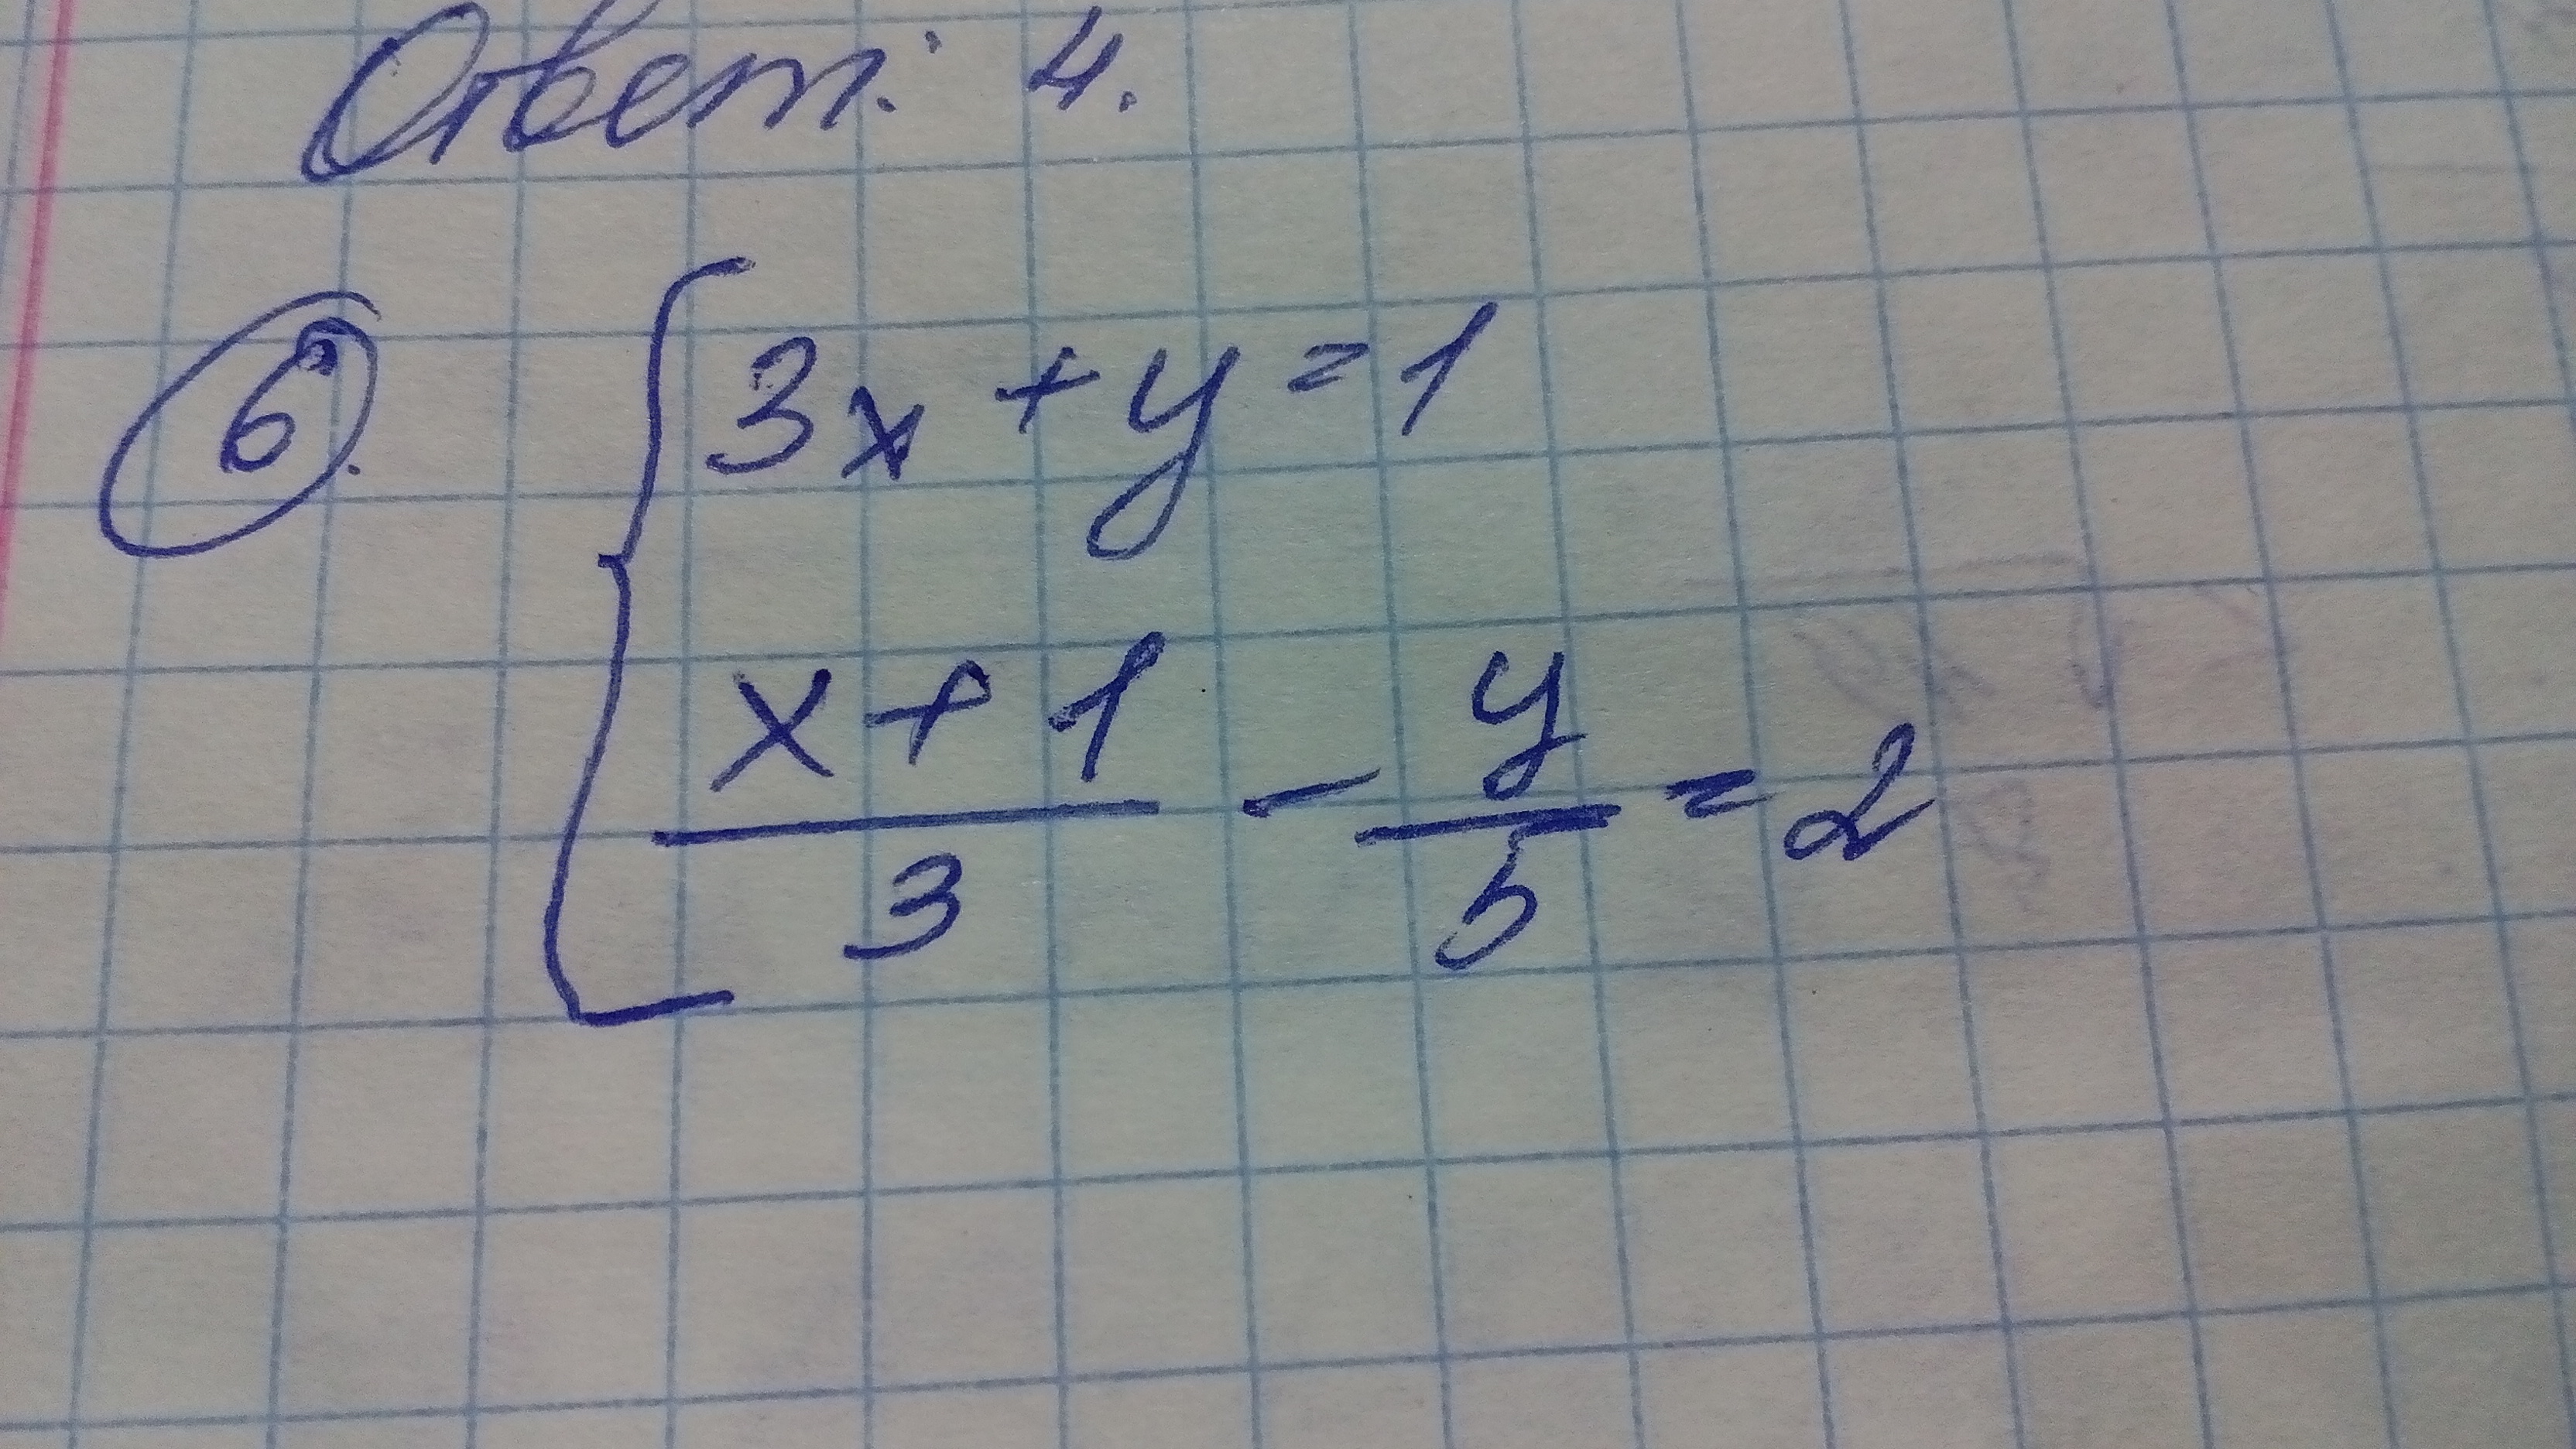 Ответ: 4.
6. { 3x + y = 1
x + 1 / 3 - y / 5 = 2